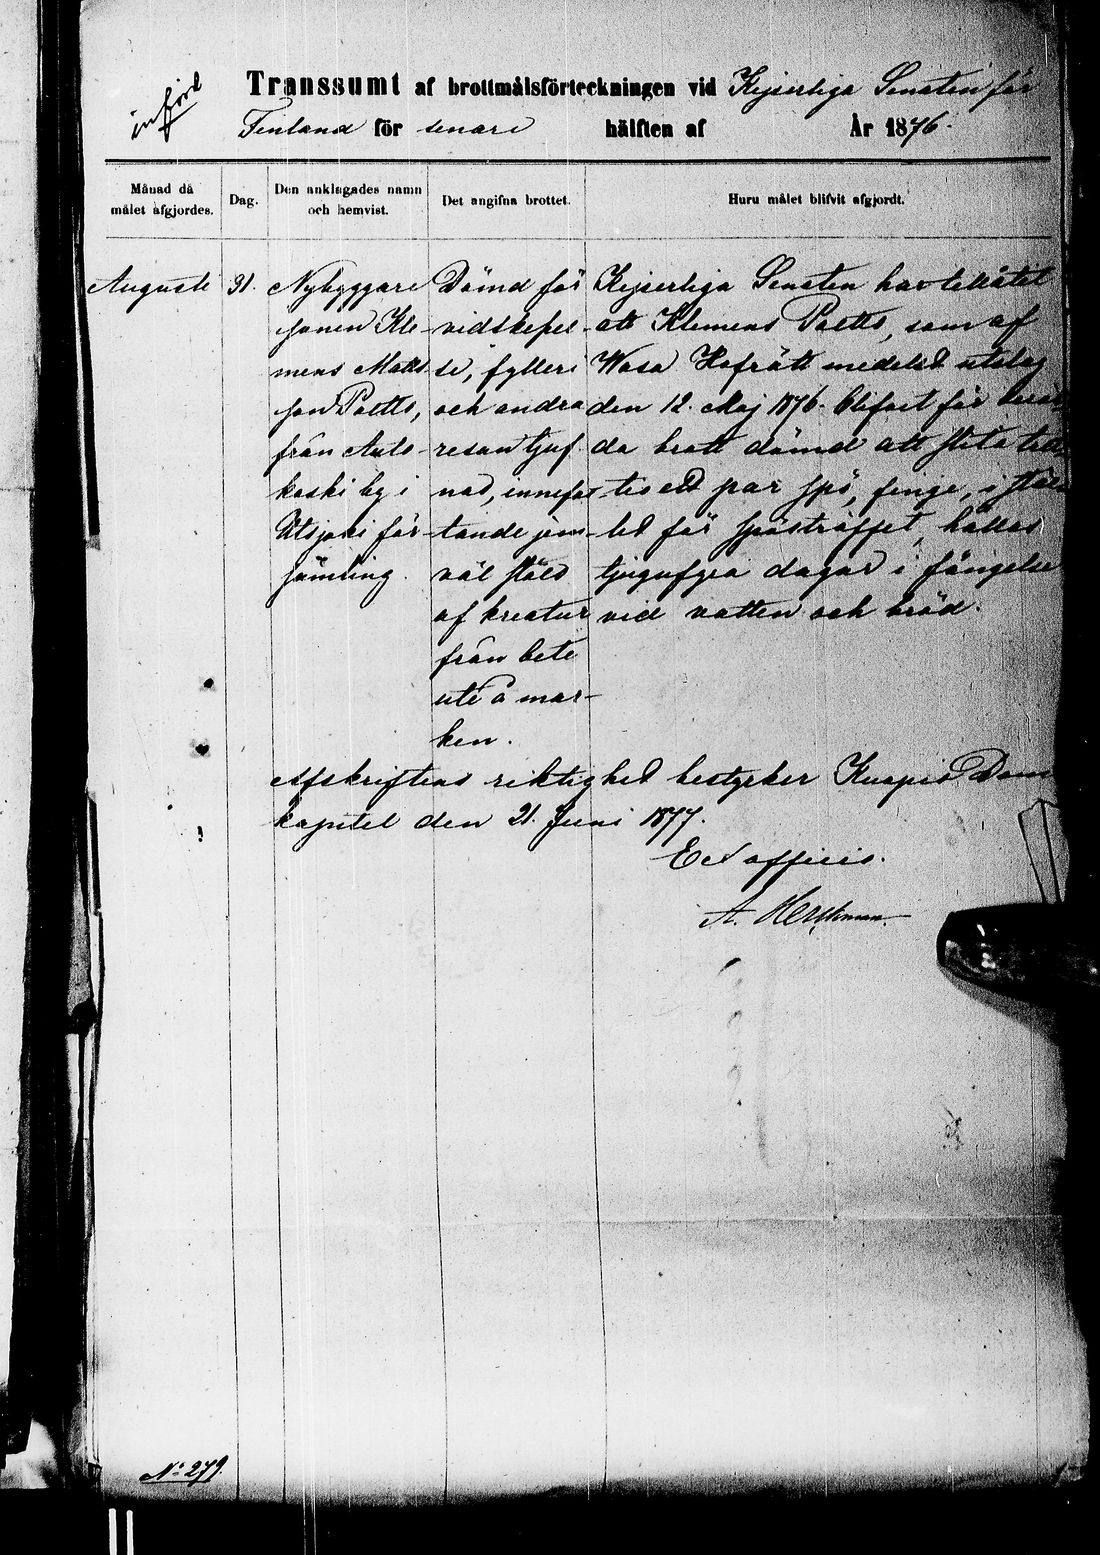 införd
Transsumt af brottmålsförteckningen vid Kejserliga Senaten för
Finland för senare hälften af År 1876.
Månad då målet afgjordes.
Dag.
Den anklagades namn och hemvist.
Det angifna brottet.
Huru målet blifvit afgjordt.
Augusti
31.
Nybyggare
sonen Kle-
mens Matts
son Paltto,
från Auts-
koski by i
Utsjoki för-
samling.
Dömd för
vidskepel-
se, fylleri
och andra
resan tjuf-
nad, innefat-
tande jem-
väl stöld
af kreatur
från bete
ute å mar-
ken.
Kejserliga Senaten har tillåtit
att Klemens Paltto, som af
Wasa Hofrätt medelst utslag
den 12. Maj 1876. blifvit för
da brott dömd att slita
tio ell par spö, finge, i stäl-
let för spöstraffet, hållas
tjugufyra dagar i fängelse
vid vatten och bröd.
Afskriftens riktighet bestyrker Kuopio Dom
kapitel den 21. Juni 1877.
Ex officio.
A. Herckman.
No 279.